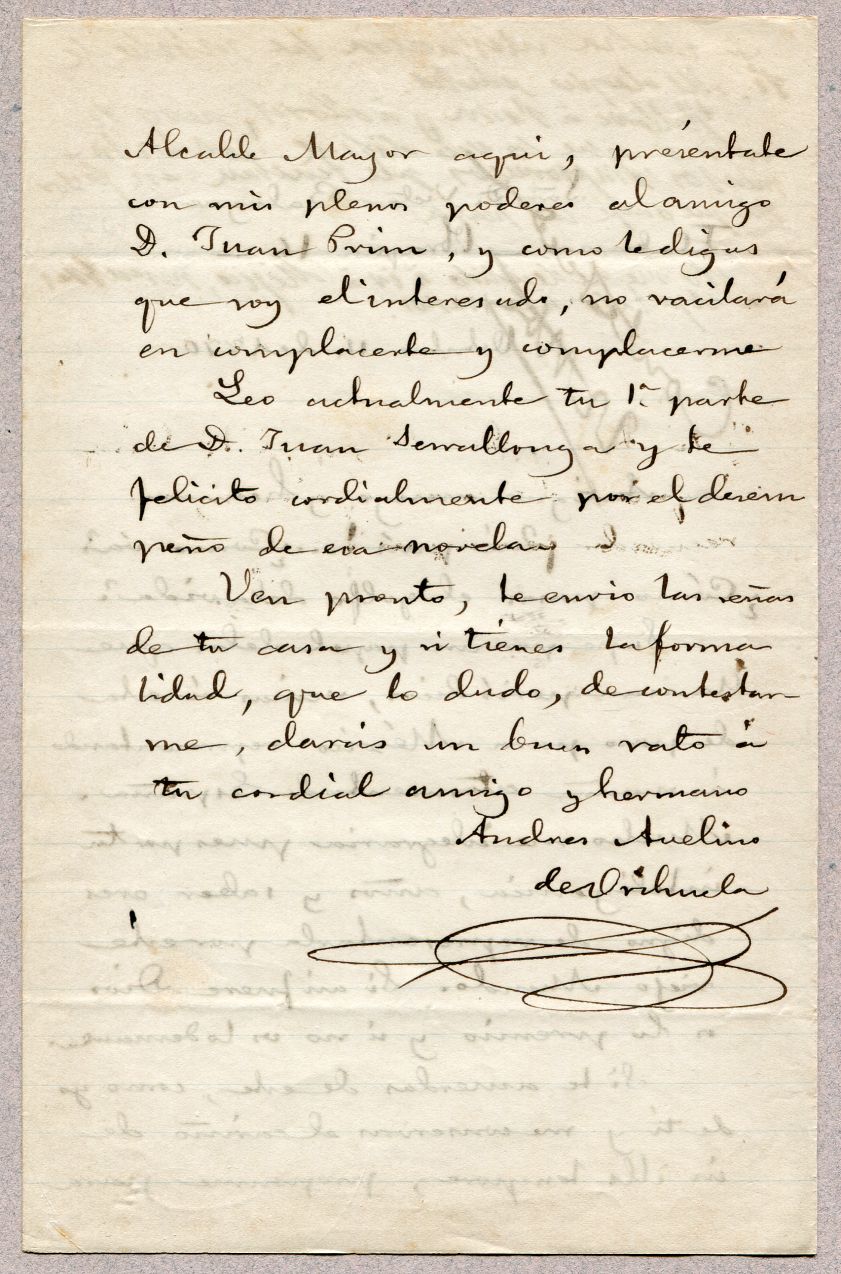 Alcalde Mayor aqui, preséntate
con mis plenos poderes al amigo
D. Juan Prim, y como le digas
que soy el interesado, no vacilará
en complacerte y complacerme
Leo actualmente tu 1ª parte
de D. Juan Serrallonga y te
felicito cordialmente por el desem
peño de esa novela
Ven pronto, te envio las señas
de tu casa y si tienes la forma
lidad, que lo dudo, de contestar-
me, darás un buen rato á
tu cordial amigo y hermano
Andres Avelino
de Orihuela